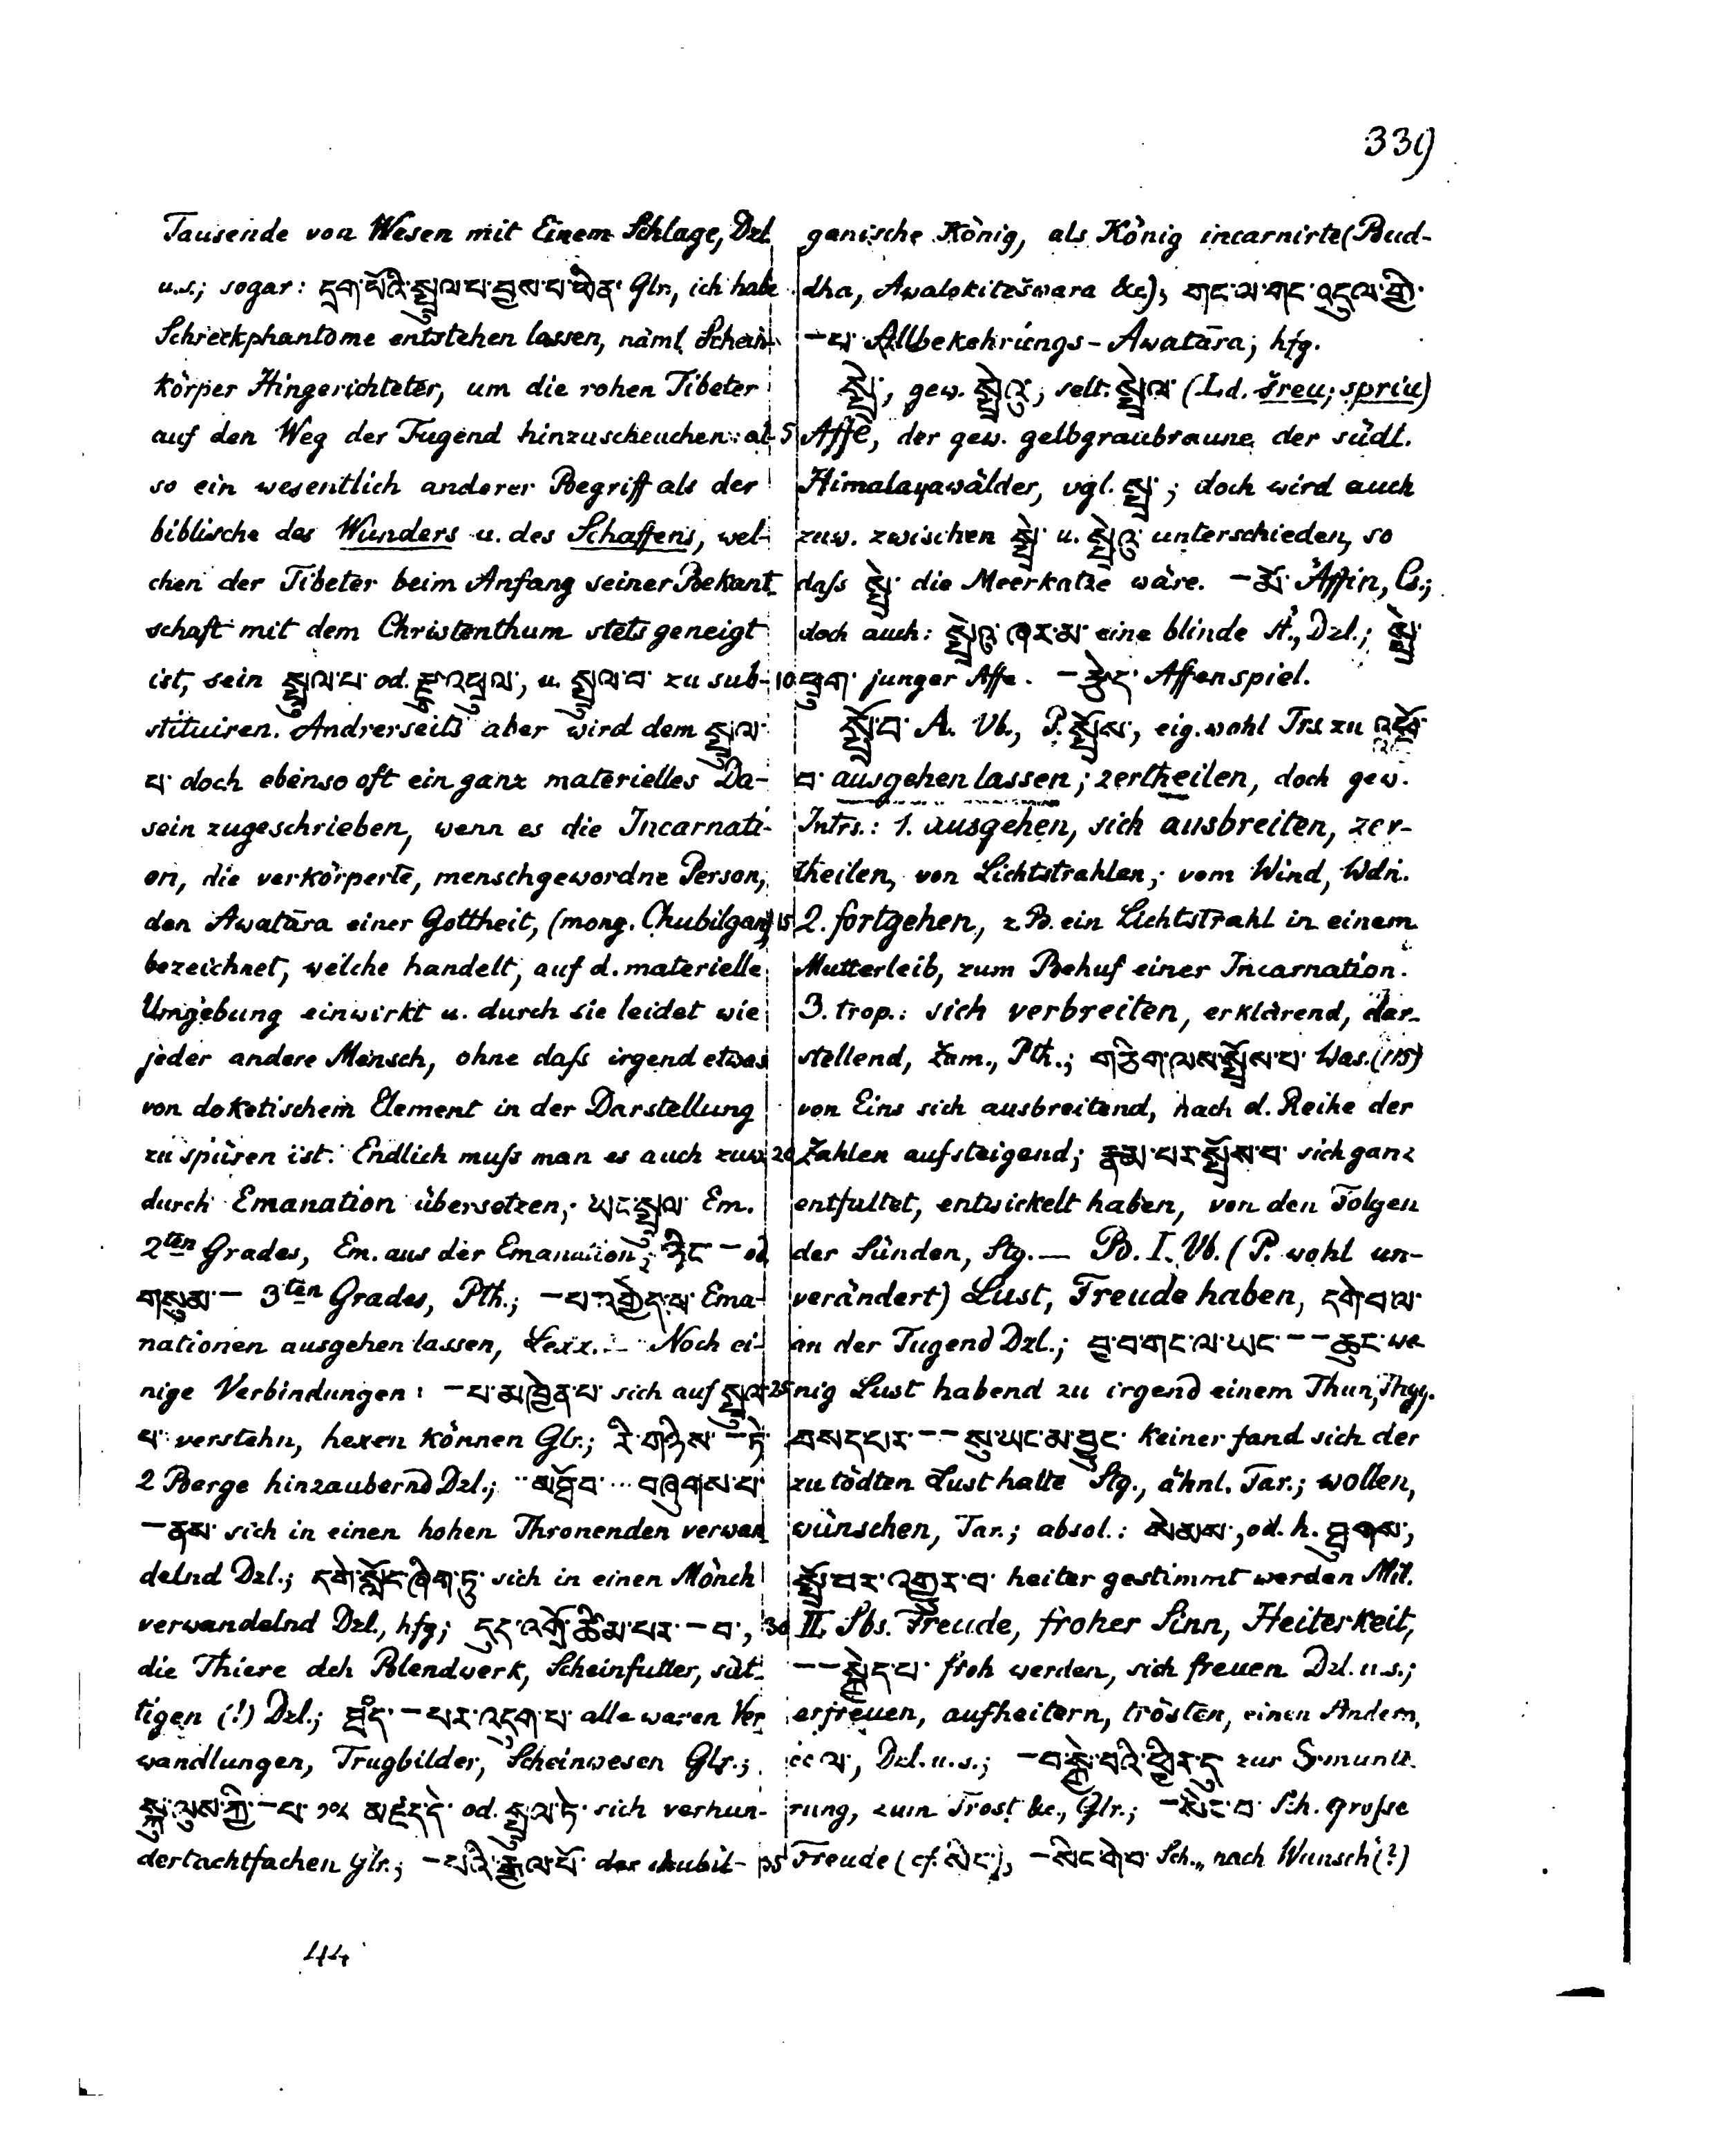 339
Tausende von Wesen mit Einem Schlage, Dzl.
u.s.; sogar: དྲག་པོའི་སྤྲུལ་པ་བྱས་པ་ཡིན་ Glr., ich habe
Schreckphantome entstehen lassen, näml. Schein-
körper Hingerichteter, um die rohen Tibeter
auf den Weg der Tugend hinzuscheuchen: al-
so ein wesentlich anderer Begriff als der
biblische des Wunders u. des Schaffens, wel-
chen der Tibeter beim Anfang seiner Bekant-
schaft mit dem Christenthum stets geneigt
ist, sein སྤྲུལ་པ་ od. རྫུ་འཕྲུལ་, u. སྤྲུལ་བ་ zu sub-
stituiren. Andrerseits aber wird dem སྤྲུལ་
པ་ doch ebenso oft ein ganz materielles Da-
sein zugeschrieben, wenn es die Incarnati-
on, die verkörperte, menschgewordne Person,
den Awatāra einer Gottheit, (mong. Chubilgan)
bezeichnet, welche handelt, auf d. materielle
Umgebung einwirkt u. durch sie leidet wie
jeder andere Mensch, ohne daſs irgend etwas
von doketischem Element in der Darstellung
zu spüren ist. Endlich muſs man es auch zuw.
durch Emanation übersetzen; ཡང་སྤྲུལ་ Em.
2ten Grades, Em. aus der Emanation; ཉིང་ — od.
གསུམ་ — 3ten Grades, Pth.; —པ་འགྱེད་པ་ Ema-
nationen ausgehen lassen, Lexx. — Noch ei-
nige Verbindungen: —པ་མཁྱེན་པ་ sich auf སྤྲུལ་
པ་ verstehn, hexen können Glr.; རི་གཉིས་ —ཏེ་
2 Berge hinzaubernd Dzl.; ... བཞུགས་པ་
—ནས་ sich in einen hohen Thronenden verwan
delnd Dzl.; དགེ་སློང་ཞིག་ཏུ་ sich in einen Mönch
verwandelnd Dzl., hfg; དུད་འགྲོ་ཚིམ་པར་ —བ་,
die Thiere dch Blendwerk, Scheinfutter, sät-
tigen (!) Dzl.; —པར་འདུག་པ་ alle waren Ver
wandlungen, Trugbilder, Scheinwesen Glr.;
སྐུ་ལུས་ཀྱི་ —པ་ ༡༠༨ མཛད་དེ་ od. སྤྲུལ་ཏེ་ sich verhun-
dertachtfachen Glr.; —པའི་རྒྱལ་པོ་ der chubil-
44
ganische König, als König incarnirte (Bud-
dha, Awalokitešwara &c); གང་ལ་གང་འདུལ་གྱི་
—པ་ Allbekehrungs-Awatāra; hfg.
སྤྲེ་, gew. སྤྲེའུ་; selt. སྤྲེལ་ (Ld. šreu; spriu)
5 Affe, der gew. gelbgraubraune der südl.
Himalayawälder, vgl. སྤྲ་; doch wird auch
zuw. zwischen སྤྲེ་ u. སྤྲེའུ་ unterschieden, so
daſs སྤྲེ་ die Meerkatze wäre. —མོ་ Äffin, Cs.;
doch auch: སྤྲེའུ་ཞར་མ་ eine blinde Ä., Dzl.; སྤྲེ་
10 ཕྲུག་ junger Affe. —རྩེད་ Affenspiel.
སྤྲོ་བ་ A. Vb., P. སྤྲོས་, eig. wohl Trs. zu འཕྲོ་
བ་ ausgehen lassen; zertheilen, doch gew.
Intrs.: 1. ausgehen, sich ausbreiten, zer-
theilen, von Lichtstrahlen; vom Wind, Wdn.
15 2. fortgehen, z.B. ein Lichtstrahl in einem
Mutterleib, zum Behuf einer Incarnation.
3. trop.: sich verbreiten, erklärend, dar-
stellend, Zam., Pth.; གཅིག་ལས་སྤྲོས་པ་ Was. (115)
von Eins sich ausbreitend, nach d. Reihe der
20 Zahlen aufsteigend; རྣམ་པར་སྤྲོས་པ་ sich ganz
entfaltet, entwickelt haben, von den Folgen
der Sünden, Stg. — B. I. Vb. (P. wohl un-
verändert) Lust, Freude haben, དགེ་བལ་
an der Tugend Dzl.; བྱ་བ་གང་ལ་ཡང་ — — ཆུང་ we
25 nig Lust habend zu irgend einem Thun, Thgy.
བསད་པར་ — — སུ་ཡང་མ་བྱུང་ keiner fand sich der
zu tödten Lust hatte Stg., ähnl. Tar.; wollen,
wünschen, Tar.; absol.: སེམས་, od. h. ཐུགས་,
སྤྲོ་བར་འགྱུར་བ་ heiter gestimmt werden Mil.
30 II. Sbs. Freude, froher Sinn, Heiterkeit,
— — སྐྱེད་པ་ froh werden, sich freuen Dzl. u.s.;
erfreuen, aufheitern, trösten, einen Andern,
cc ལ་, Dzl. u.s.; —བ་སྐྱེ་བའི་ཕྱིར་དུ་ zur Ermunte-
rung, zum Trost &c., Glr.; —སེང་བ་ Sch. groſse
35 Freude (cf. སེང་), —སེང་གེབ་ Sch., nach Wunsch (?)